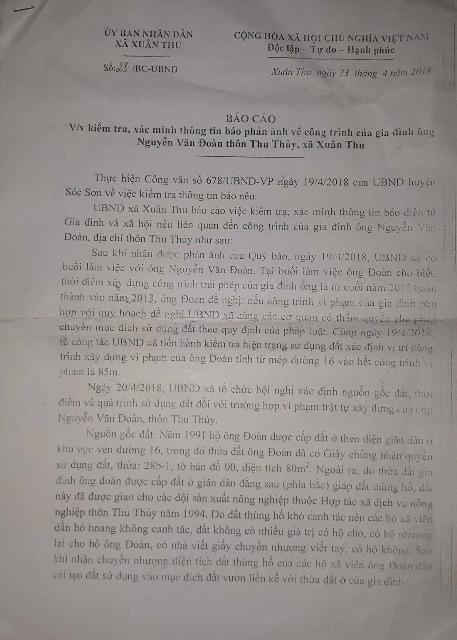 ỦY BAN NHÂN DÂN
XÃ XUÂN THU
CỘNG HÒA XÃ HỘI CHỦ NGHĨA VIỆT NAM
Độc lập - Tự do - Hạnh phúc
Số: /BC-UBND
Xuân Thu, ngày 23 tháng 4 năm 2018
BÁO CÁO
V/v kiểm tra, xác minh thông tin báo phản ánh về công trình của gia đình ông
Nguyễn Văn Đoàn thôn Thu Thủy, xã Xuân Thu
Thực hiện Công văn số 678/UBND-VP ngày 19/4/2018 của UBND huyện
Sóc Sơn về việc kiểm tra thông tin báo nêu.
UBND xã Xuân Thu báo cáo việc kiểm tra, xác minh thông tin báo điện tử
Gia đình và xã hội nêu liên quan đến công trình của gia đình ông Nguyễn Văn
Đoàn, địa chỉ thôn Thu Thủy như sau:
Sau khi nhận được phản ánh của Quý báo, ngày 19/4/2018, UBND xã có
buổi làm việc với ông Nguyễn Văn Đoàn. Tại buổi làm việc ông Đoàn cho biết
thời điểm xây dựng công trình trái phép của gia đình ông là từ cuối năm hoàn
thành vào năm 2013, ông Đoàn đề nghị nếu công trình vi phạm của gia đình
hợp với quy hoạch đề nghị UBND xã cùng các cơ quan có thẩm quyền cho
chuyển mục đích sử dụng đất theo quy định của pháp luật. Cũng ngày 19/4/2018,
tổ công tác UBND xã tiến hành kiểm tra hiện trạng sử dụng đất xác định vị trí công
trình xây dựng vi phạm của ông Đoàn tính từ mép đường 16 vào hết công trình vi
phạm là 85m.
Ngày 20/4/2018, UBND xã tổ chức hội nghị xác định nguồn gốc đất, thời
điểm và quá trình sử dụng đất đối với trường hợp vi phạm trật tự xây dựng của ông
Nguyễn Văn Đoàn, thôn Thu Thủy.
Nguồn gốc đất: Năm 1991 hộ ông Đoàn được cấp đất ở theo diện giãn dân ở
khu vực ven đường 16, trong đó thửa đất ông Đoàn đã có Giấy chứng nhận quyền
sử dụng đất, thửa: 285-1, tờ bản đồ 00, diện tích 80m². Ngoài ra, do thửa đất gia
đình ông Đoàn được cấp đất ở giãn dân đằng sau (phía bắc) giáp đất thùng hố, đất
này đã được giao cho các đội sản xuất nông nghiệp thuộc Hợp tác xã dịch vụ nông
nghiệp thôn Thu Thủy năm 1994. Do đất thùng hố khó canh tác nên các hộ xã viên
dần bỏ hoang không canh tác, đất không có nhiều giá trị có hộ cho, có hộ nhượng
lại cho hộ ông Đoàn, có nhà viết giấy chuyển nhượng viết tay, có hộ không. Sau
khi nhận chuyển nhượng diện tích đất thùng hố của các hộ xã viên ông Đoàn dần
cải tạo đất sử dụng vào mục đích đất vườn liền kề với thửa đất ở của gia đình